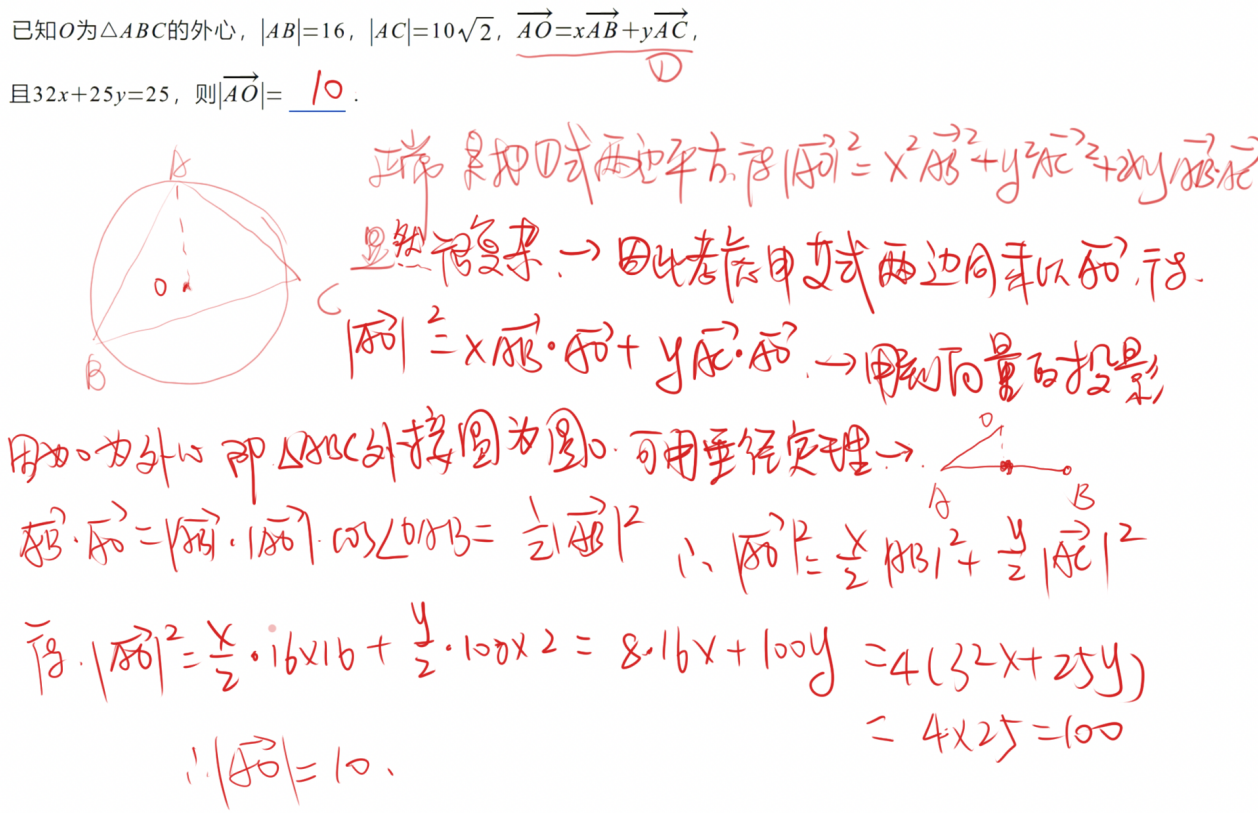 已知O为△ABC的外心，|AB|=16，|AC|=10√2，\overrightarrow{AO}=x\overrightarrow{AB}+y\overrightarrow{AC}，
①
且32x+25y=25，则|\overrightarrow{AO}|= 10 .
正常是把①式两边平方,得|\overrightarrow{AO}|²=x²\overrightarrow{AB}²+y²\overrightarrow{AC}²+2xy\overrightarrow{AB}·\overrightarrow{AC}
显然很复杂.→因此考虑用①式两边同乘以\overrightarrow{AO},得.
|\overrightarrow{AO}|²=x\overrightarrow{AB}·\overrightarrow{AO}+y\overrightarrow{AC}·\overrightarrow{AO}.→用到向量的投影
A
O
C
B
因为O为外心 即△ABC外接圆为圆O.可用垂径定理→.
O
A
B
\overrightarrow{AB}·\overrightarrow{AO}=|\overrightarrow{AB}|·|\overrightarrow{AO}|·cos∠OAB=½|\overrightarrow{AB}|² ∴|\overrightarrow{AO}|²=x/2|AB|²+y/2|\overrightarrow{AC}|²
得.|\overrightarrow{AO}|²=x/2·16×16+y/2·100×2=8·16x+100y=4(32x+25y)
=4×25=100
∴|\overrightarrow{AO}|=10、